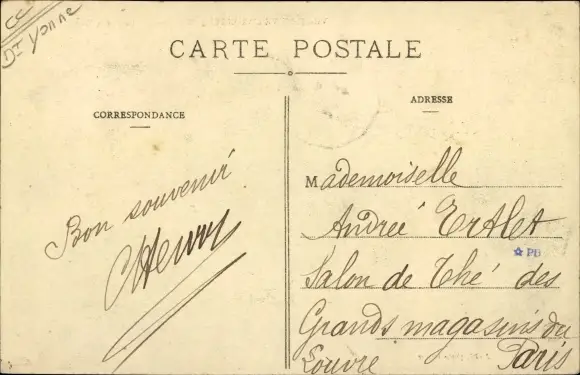 CC
Dt Yonne
CARTE POSTALE
CORRESPONDANCE
ADRESSE
Bon souvenir
CHenry
Mademoiselle
Andreé
PB
Salon de Thé des
Grands magasins du
Louvre Paris